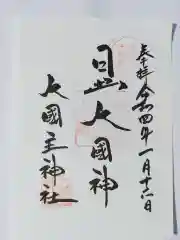 奉拝 令和四年一月十六日
大國神
大國主神社